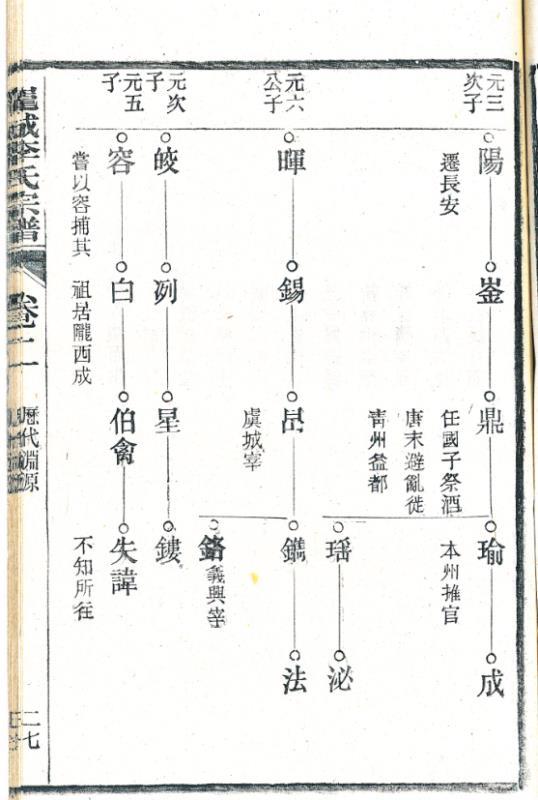 元三
次子
陽
遷長安
崟
鼎
任國子祭酒
唐末避亂徙
青州益都
瑜
本州推官
成
瑶
泌
元六
公子
暉
錫
昂
虞城宰
鐫
法
鉻
義興宰
元次
子
皎
洌
星
鏤
元五
子
容
嘗以容捕其
白
祖居隴西成
伯禽
失諱
不知所往
李氏宗譜
卷二
歷代淵源
二七